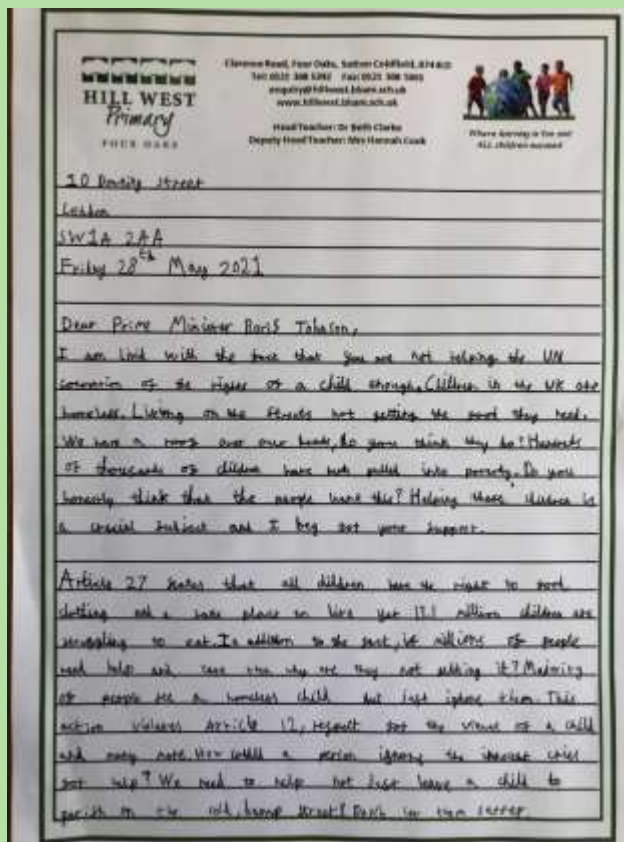 HILL WEST
Primary
FOUR OAKS
Clarence Road, Four Oaks, Sutton Coldfield, B74 4LD
Tel: 0121 308 Fax: 0121 308
enquiry@hillwest.bham.sch.uk
www.hillwest.bham.sch.uk
Head Teacher: Dr Beth Clarke
Deputy Head Teacher: Mrs Hannah Cook
Where learning is fun and
ALL children succeed
10 Street
London
SW1A 2AA
Friday 28th May 2021
Dear Prime Minister Boris Johnson,
I am livid with the fact that you are not helping the UN
of the rights of a child enough. Children in the UK are
homeless. Living on the streets not getting the food they need.
We have a roof over our heads, do you think they do? Hundreds
of thousands of children have been pulled into poverty. Do you
honestly think that the people want this? Helping these children is
a crucial subject and I beg for your support.
Article 27 states that all children have the right to food
clothing and a safe place to live yet million children are
struggling to eat. In addition to the fact, if millions of people
need help and care then why are they not getting it? 
of people see a homeless child but just ignore them. This
action violates Article 12, respect for the views of a child
and many more. How could a person ignore the cries
for help? We need to help not just leave a child to
perish in the cold, street! let them suffer.